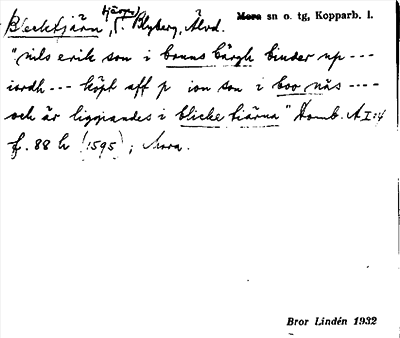 Blecktjärn, (tjärn) Blyberg, Älvd. Mora sn o. tg, Kopparb. l.
"nils erik son i bonns bärgh binder up ---
iordh --- köpt aff p ion son i boo näs ----
och är liggiandes i blicke tiärna" Domb. A I:4
f. 88 h (1595); Mora.
Bror Lindén 1932